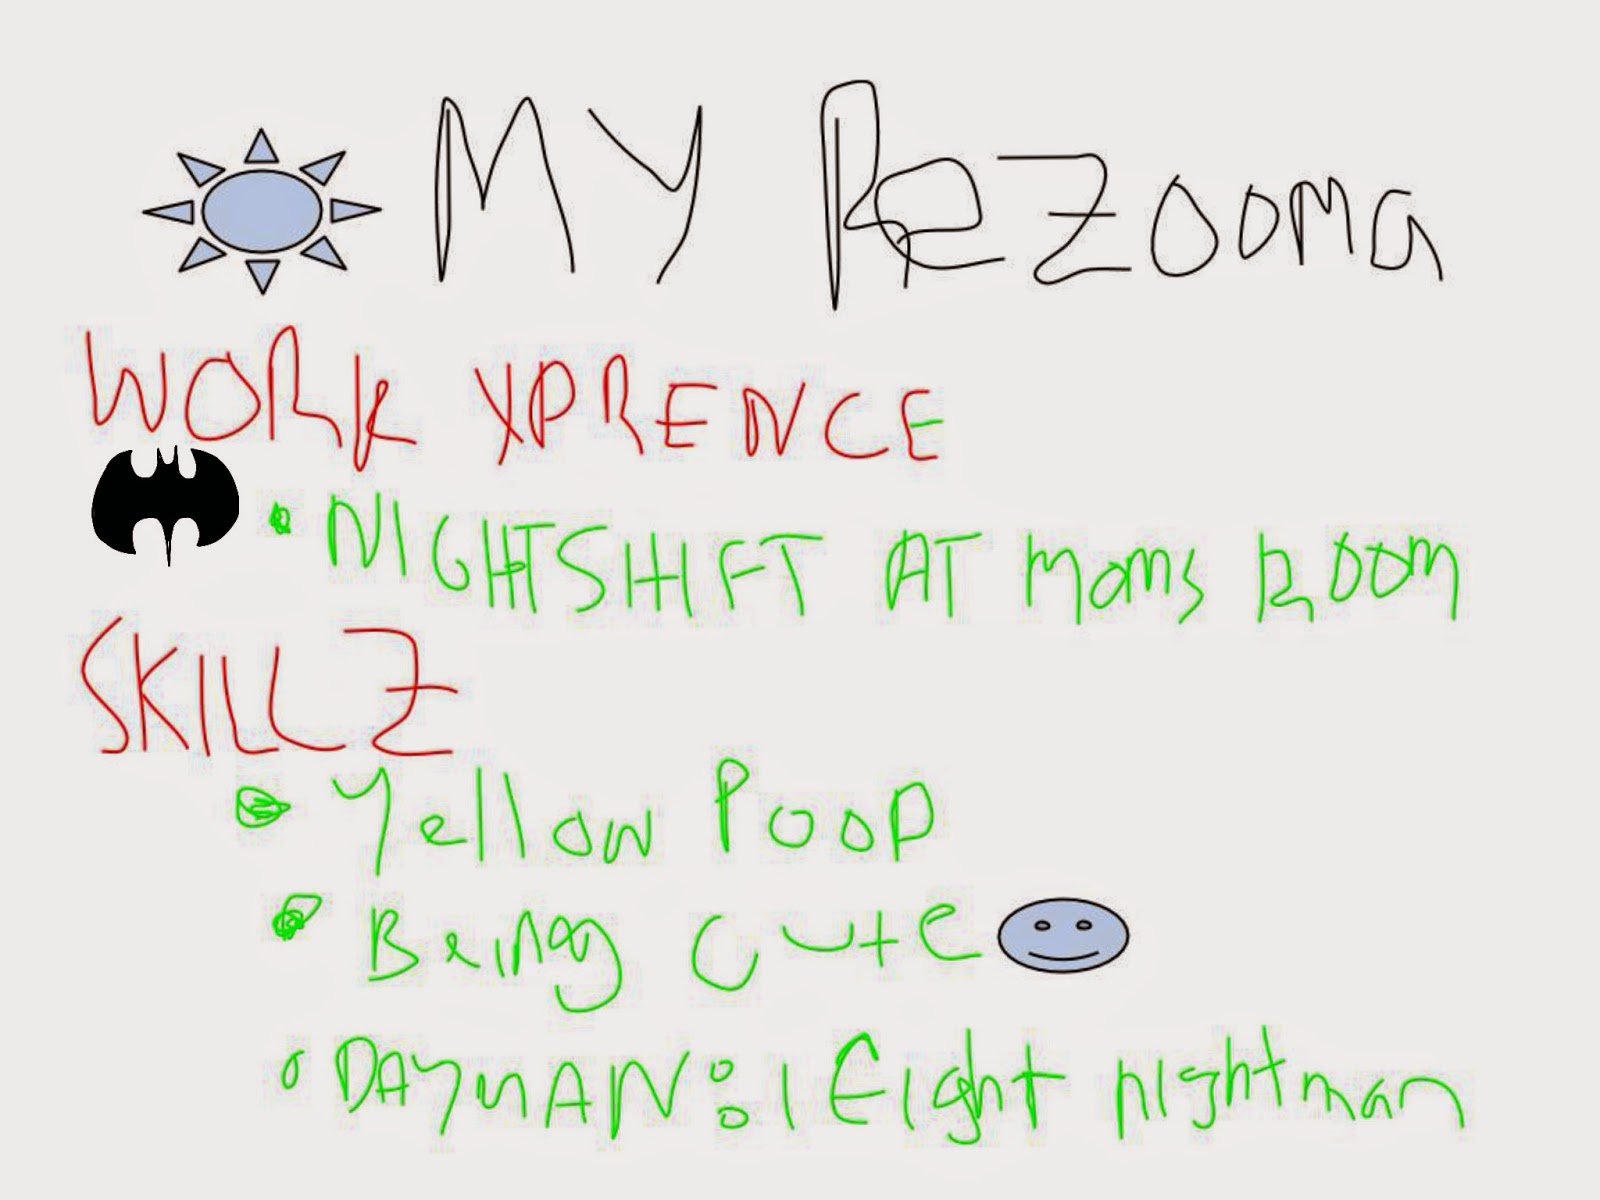 MY ReZooma
WORK XPRENCE
• NIGHTSHIFT AT Moms ROOM
SKILLZ
• Yellow Poop
• Being cute
• DAYMAN: I Eight nightman